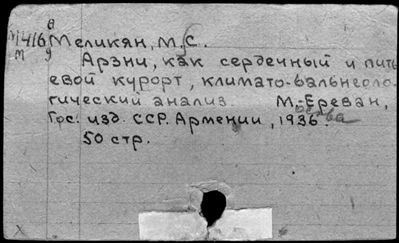 в
М416 Меликян, М.С.
м 9 Арзни, как сердечный и пить
евой курорт, климато-бальнеоло-
гический анализ. М.-Ереван,
Гос. изд. ССР. Армении, 1936.
50 стр.